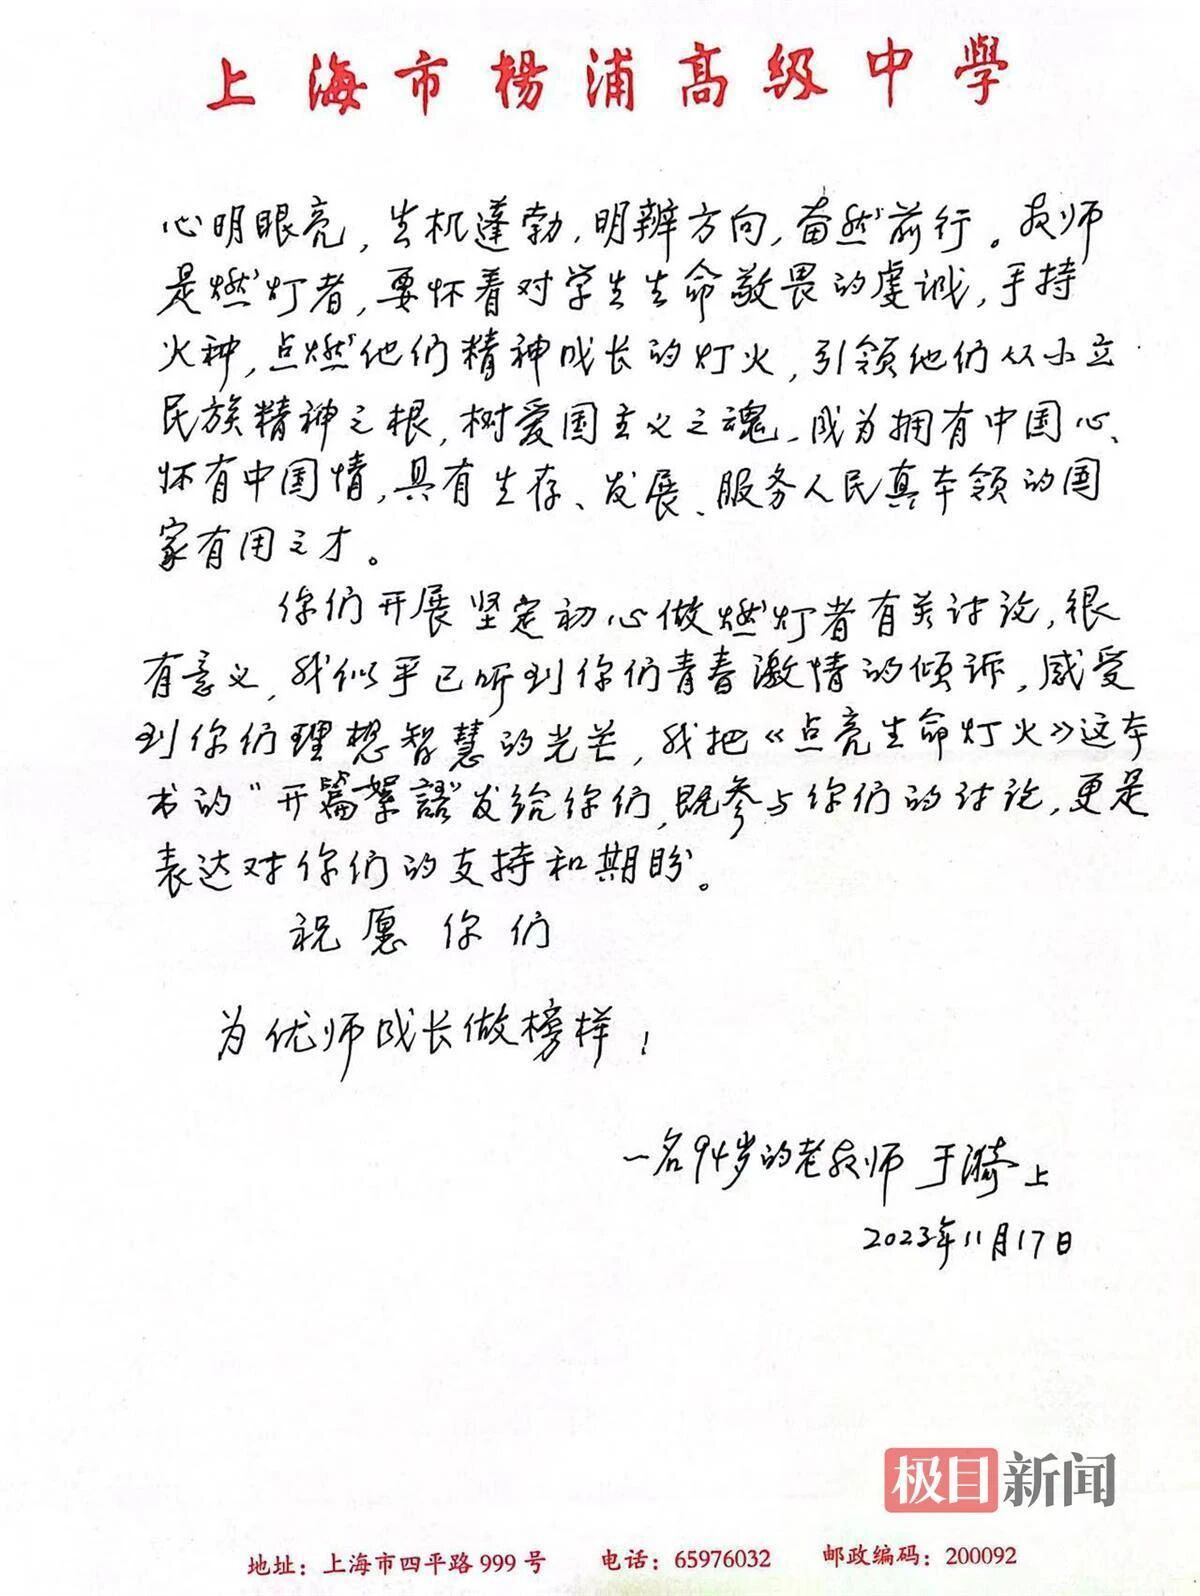 上海市杨浦高级中學
心明眼亮，生机蓬勃，明辨方向，奋然前行。教师
是燃灯者，要怀着对学生生命敬畏的虔诚，手持
火种，点燃他们精神成长的灯火，引领他们从小立
民族精神之根，树爱国主义之魂，成为拥有中国心、
怀有中国情，具有生存、发展、服务人民真本领的国
家有用之才。
你们开展坚定初心做燃灯者有关讨论，很
有意义，我似乎已听到你们青春激情的倾诉，感受
到你们理想智慧的光芒，我把《点亮生命灯火》这本
书的“开篇絮语”发给你们，既参与你们的讨论，更是
表达对你们的支持和期盼。
祝愿你们
为优师成长做榜样！
一名94岁的老教师 于漪上
2023年11月17日
极目新闻
地址：上海市四平路999号 电话：65976032 邮政编码：200092